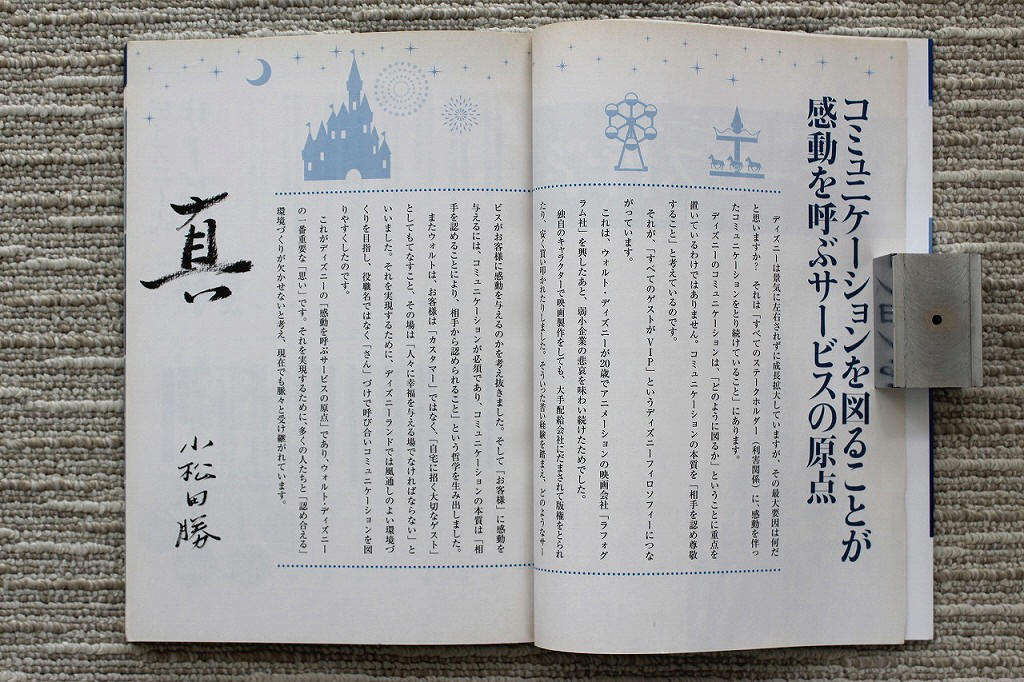 コミュニケーションを図ることが
感動を呼ぶサービスの原点
ディズニーは景気に左右されずに成長拡大していますが、その最大要因は何だ
と思いますか？　それは「すべてのステークホルダー（利害関係）に、感動を伴っ
たコミュニケーションをとり続けていること」にあります。
ディズニーのコミュニケーションは、「どのように図るか」ということに重点を
置いているわけではありません。コミュニケーションの本質を「相手を認め尊敬
すること」と考えているのです。
それが、「すべてのゲストがＶＩＰ」というディズニーフィロソフィーにつな
がっています。
これは、ウォルト・ディズニーが20歳でアニメーションの映画会社「ラフォグ
ラム社」を興したあと、弱小企業の悲哀を味わい続けたためでした。
独自のキャラクターで映画製作をしても、大手配給会社にだまされて版権をとられ
たり、安く買い叩かれたりしました。そういった苦い経験を踏まえ、どのようなサー
ビスがお客様に感動を与えるのかを考え抜きました。そして「お客様」に感動を
与えるには、コミュニケーションが必須であり、コミュニケーションの本質は「相
手を認めることにより、相手から認められること」という哲学を生み出しました。
またウォルトは、お客様は「カスタマー」ではなく、「自宅に招く大切なゲスト」
としてもてなすこと、その場は「人々に幸福を与える場でなければならない」と
いいました。それを実現するために、ディズニーランドでは風通しのよい環境づ
くりを目指し、役職名ではなく「さん」づけで呼び合いコミュニケーションを図
りやすくしたのです。
これがディズニーの「感動を呼ぶサービスの原点」であり、ウォルト・ディズニー
の一番重要な「思い」です。それを実現するために、多くの人たちと「認め合える」
環境づくりが欠かせないと考え、現在でも脈々と受け継がれています。
真
小松田勝